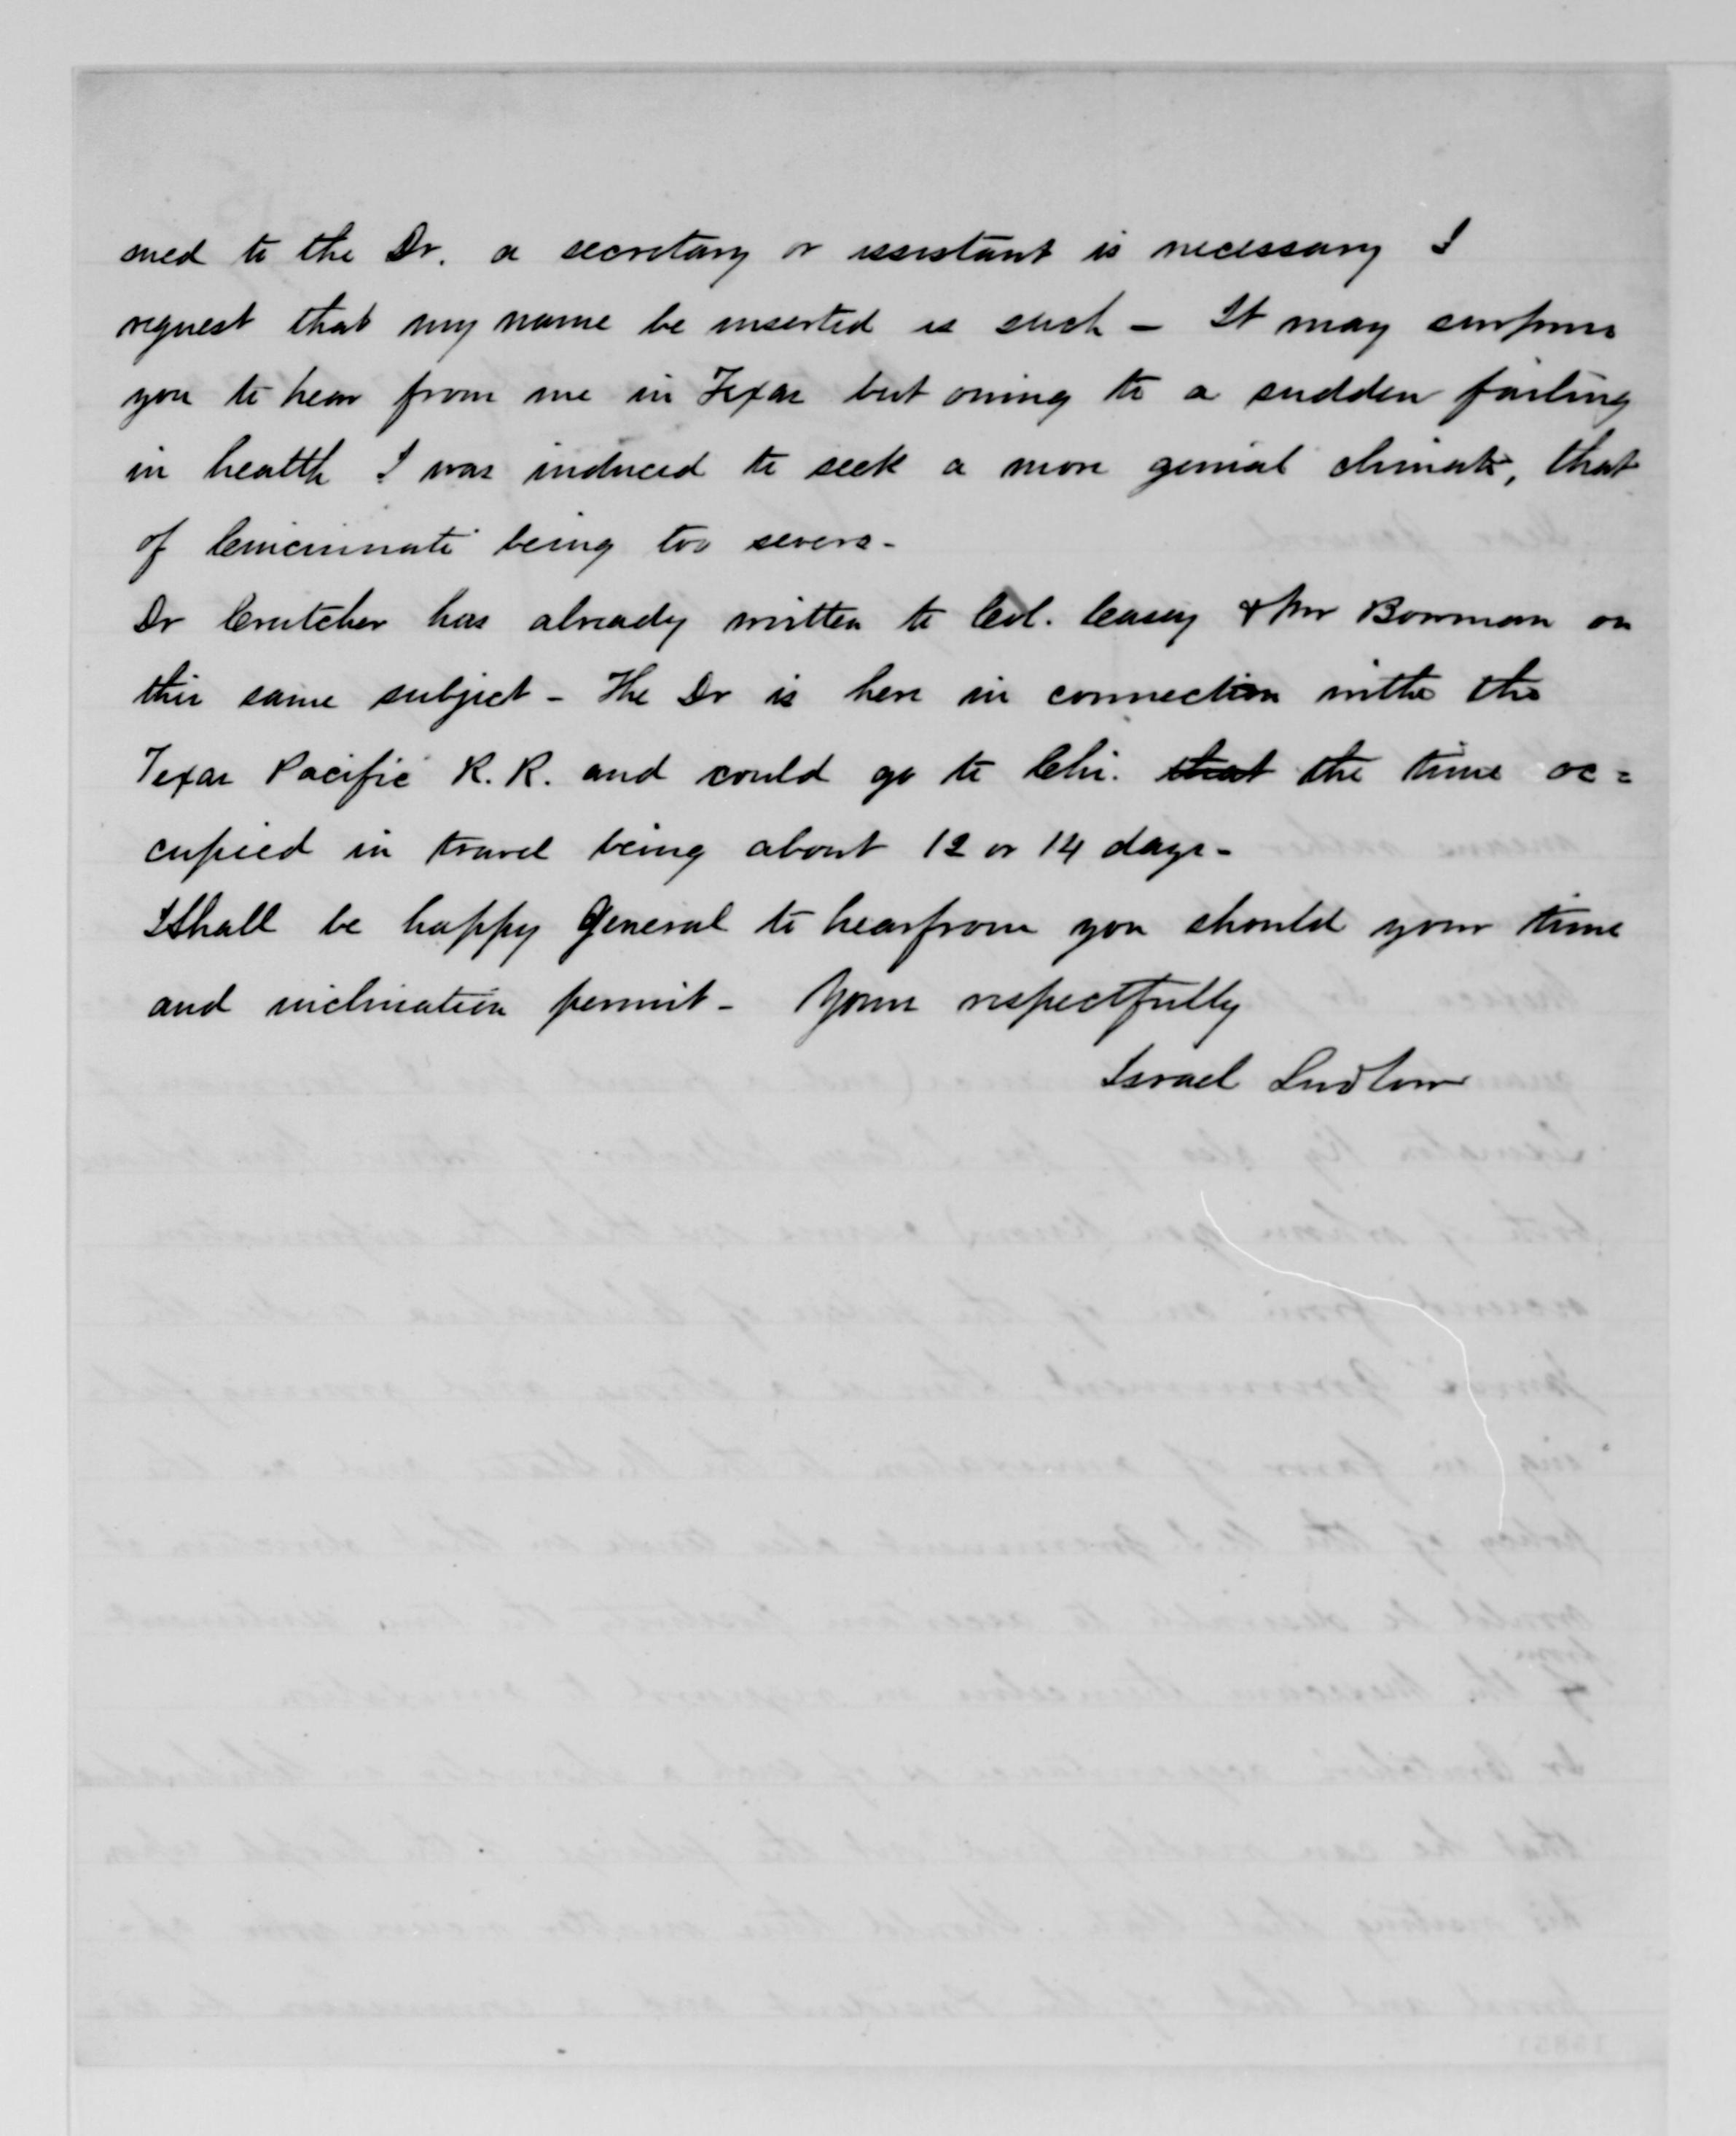 sued to the Dr. a secretary or assistant is necessary I
request that my name be inserted as such - It may surprise
you to hear from me in Texas but owing to a sudden failing
in health I was induced to seek a more genial climate, that
of Cincinnati being too severe-
Dr Crutcher has already written to Col. Casey & Mr Bowman on
this same subject - The Dr is here in connection with the
Texas Pacific R. R. and could go to Chi. that the time oc=
cupied in travel being about 12 or 14 days-
I Shall be happy General to hear from you should your time
and inclination permit- Yours respectfully
Israel Ludlow